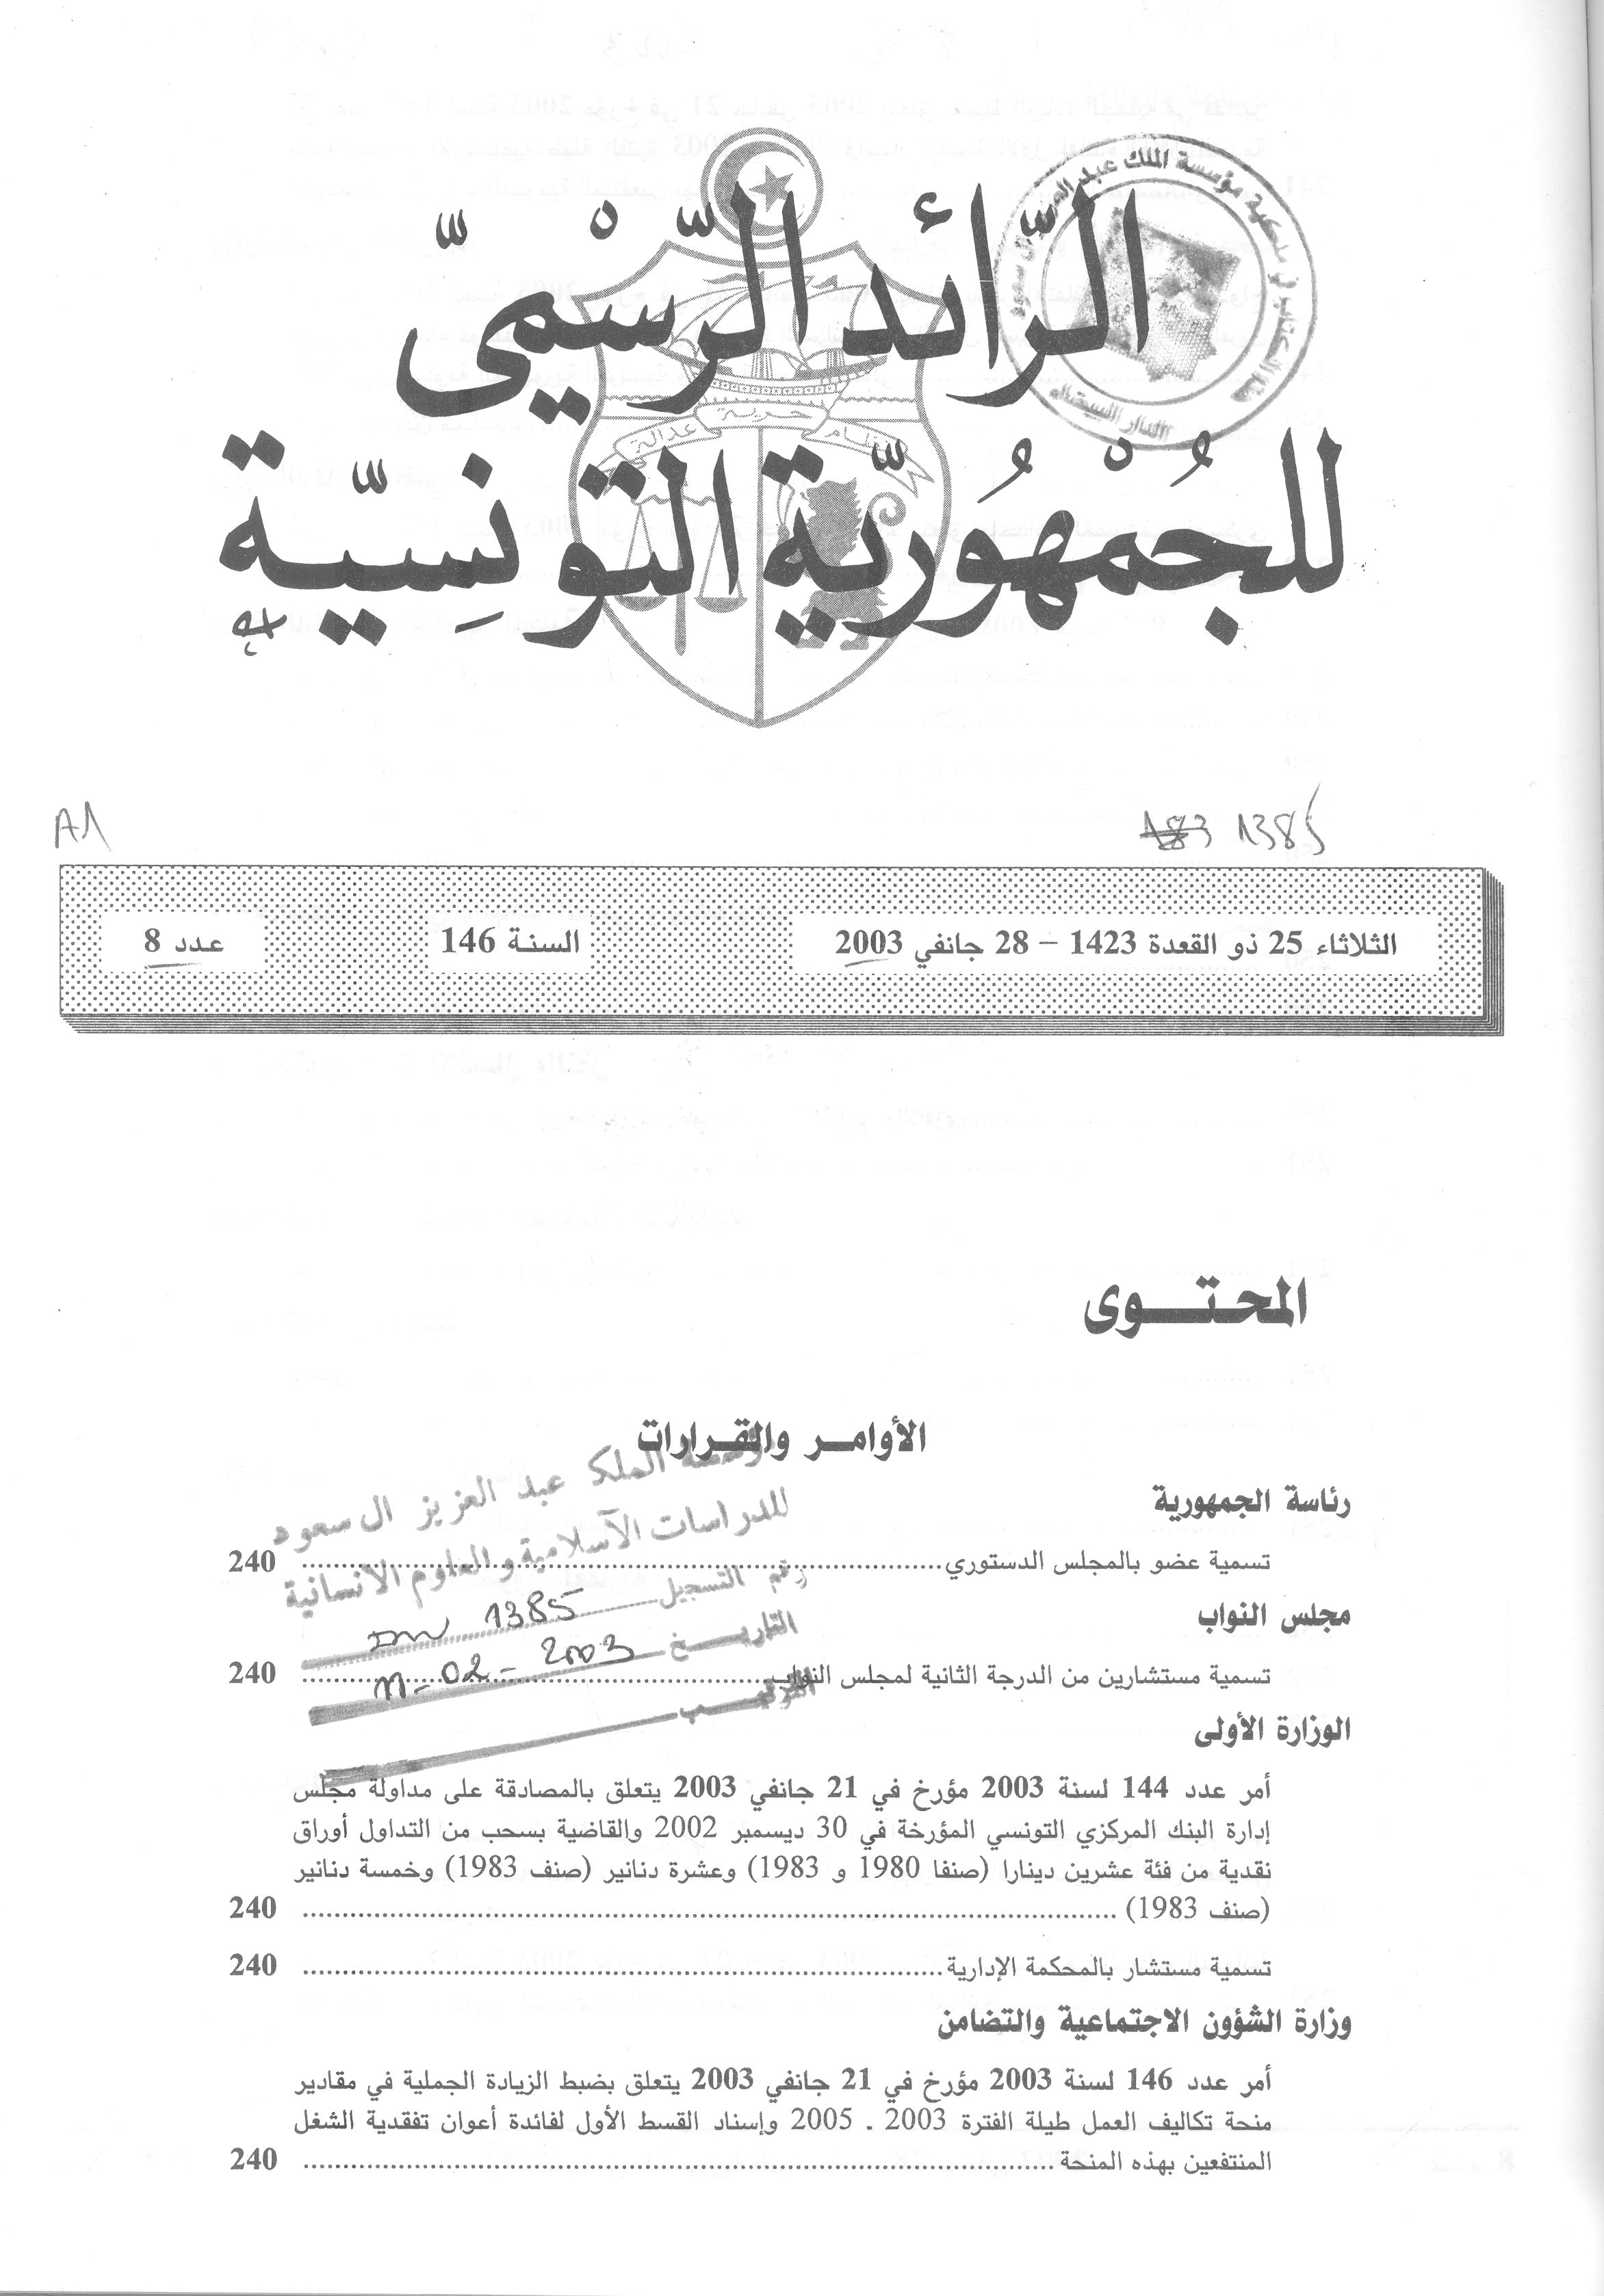 الرّائد الرّسْميّ
للجُمْهُوريّة التونِسيّة
نظام حرية عدالة
A1
1385
الثلاثاء 25 ذو القعدة 1423 – 28 جانفي 2003
السنة 146
عدد 8
المحتوى
الأوامر والقرارات
رئاسة الجمهورية
تسمية عضو بالمجلس الدستوري 240
مجلس النواب
تسمية مستشارين من الدرجة الثانية لمجلس النواب 240
الوزارة الأولى
أمر عدد 144 لسنة 2003 مؤرخ في 21 جانفي 2003 يتعلق بالمصادقة على مداولة مجلس
إدارة البنك المركزي التونسي المؤرخة في 30 ديسمبر 2002 والقاضية بسحب من التداول أوراق
نقدية من فئة عشرين دينارا (صنفا 1980 و 1983) وعشرة دنانير (صنف 1983) وخمسة دنانير
(صنف 1983) 240
تسمية مستشار بالمحكمة الإدارية 240
وزارة الشؤون الاجتماعية والتضامن
أمر عدد 146 لسنة 2003 مؤرخ في 21 جانفي 2003 يتعلق بضبط الزيادة الجملية في مقادير
منحة تكاليف العمل طيلة الفترة 2003 ـ 2005 وإسناد القسط الأول لفائدة أعوان تفقدية الشغل
المنتفعين بهذه المنحة 240
مؤسسة الملك عبد العزيز ال سعود
للدراسات الآسلامية والعلوم الآنسانية
رقم التسجيل 1385
التاريخ 02 - 2003